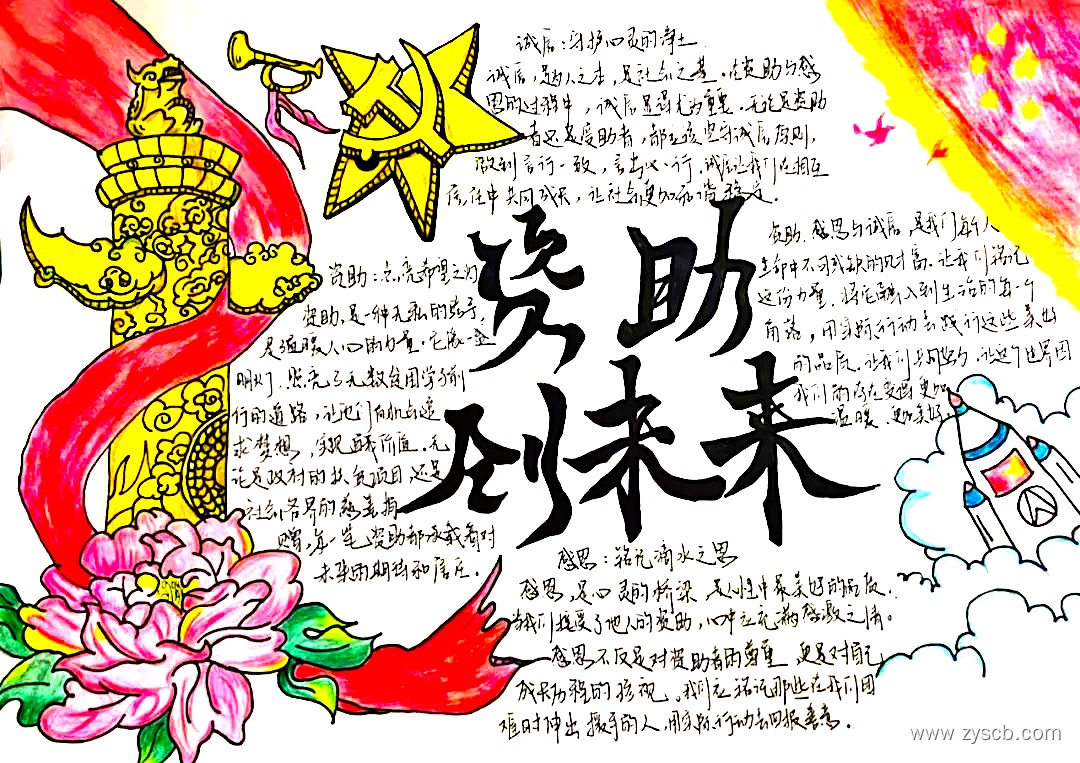 诚信：守护心灵的净土
诚信，是为人之本，是社会之基。在资助与感
恩的过程中，诚信显得尤为重要。无论是资助
者还是受助者，都应该坚守诚信原则，
做到言行一致，言出必行。诚信让我们在相互
信任中共同成长，让社会更加和谐稳定。
资助
到未来
资助：点亮希望之灯
资助，是一种无私的给予，
是温暖人心的力量。它像一盏
明灯，照亮了无数贫困学子前
行的道路，让他们有机会追
求梦想，实现自我价值。无
论是政府的扶贫项目，还是
社会各界的慈善捐
赠，每一笔资助都承载着对
未来的期待和信任。
资助、感恩与诚信，是我们每个人
生命中不可或缺的财富。让我们铭记
这份力量，将它融入到生活的每一个
角落，用实际行动去践行这些美好
的品质。让我们共同努力，让这个世界因
我们的存在变得更加
温暖、更加美好。
感恩：铭记滴水之恩
感恩，是心灵的桥梁，是人性中最美好的品质。
当我们接受了他人的资助，心中应充满感激之情。
感恩不仅是对资助者的尊重，更是对自己
成长历程的珍视。我们应铭记那些在我们困
难时伸出援手的人，用实际行动去回报善意。
www.zyscb.com